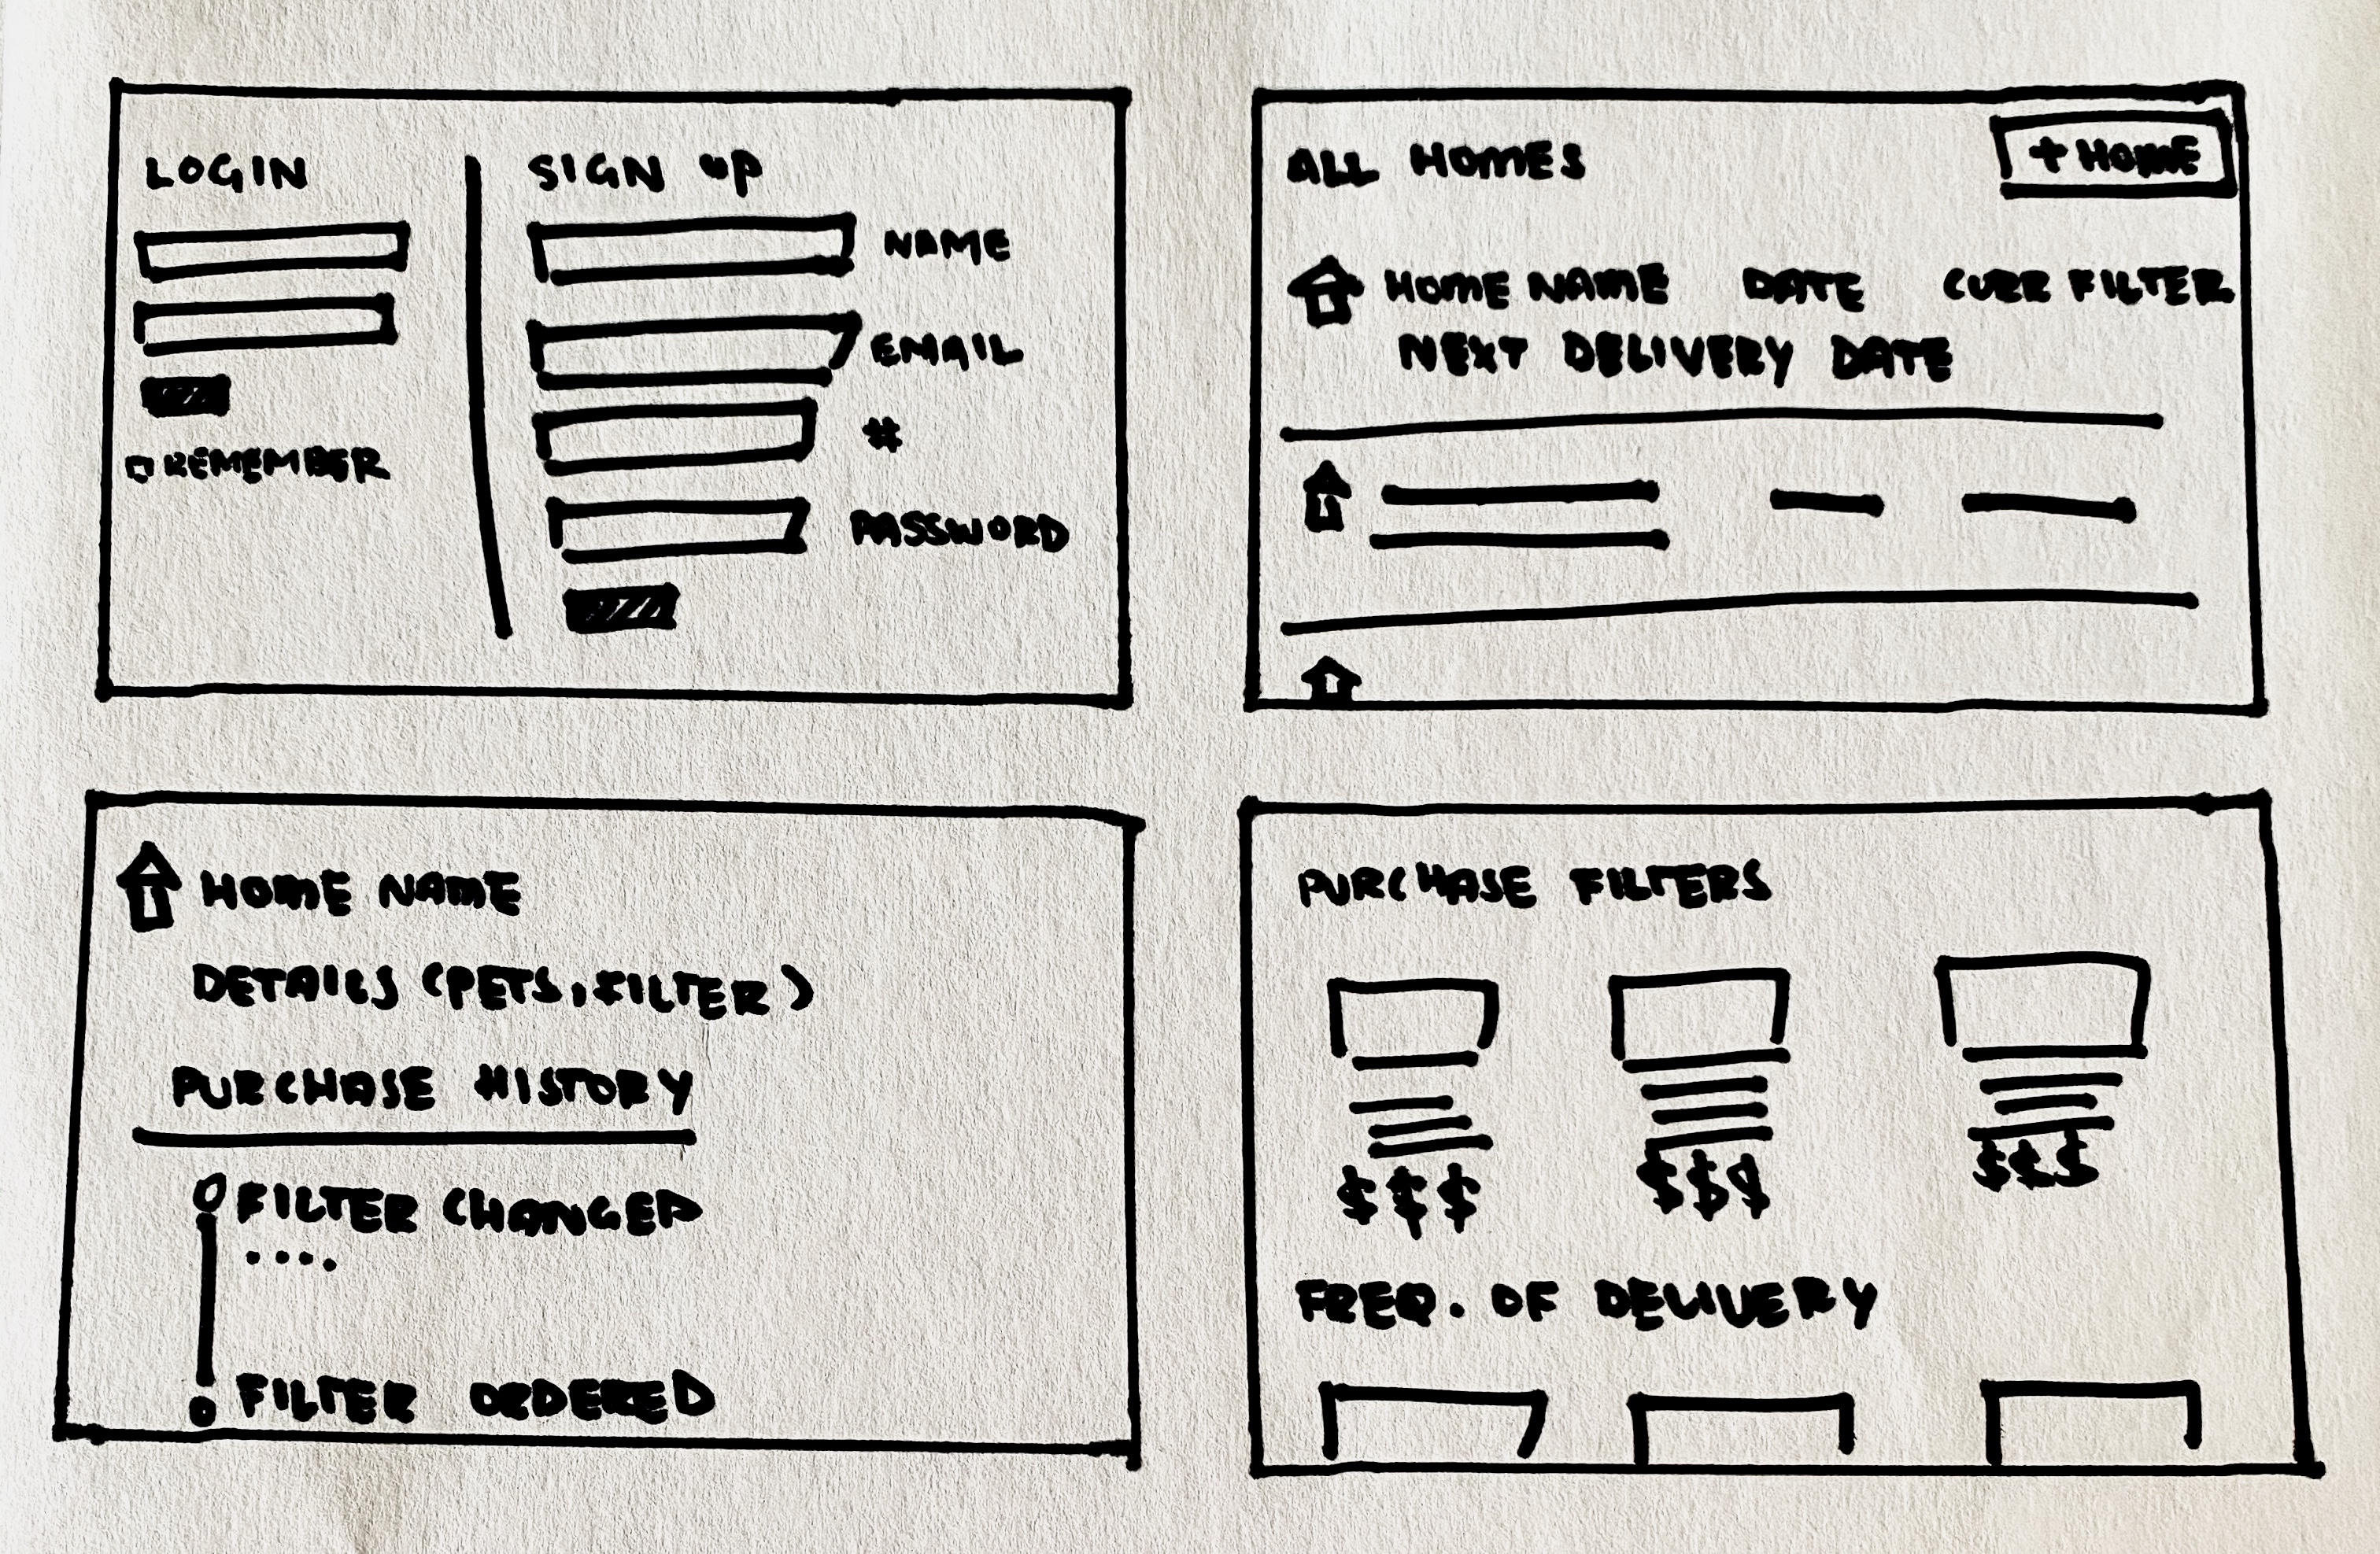 LOGIN
REMEMBER
SIGN UP
NAME
EMAIL
#
PASSWORD
ALL HOMES
+ HOME
HOME NAME DATE CURR FILTER
NEXT DELIVERY DATE
HOME NAME
DETAILS (PETS, FILTER)
PURCHASE HISTORY
FILTER CHANGED
....
FILTER ORDERED
PURCHASE FILTERS
$$$ $$$ $$$
FREQ. OF DELIVERY